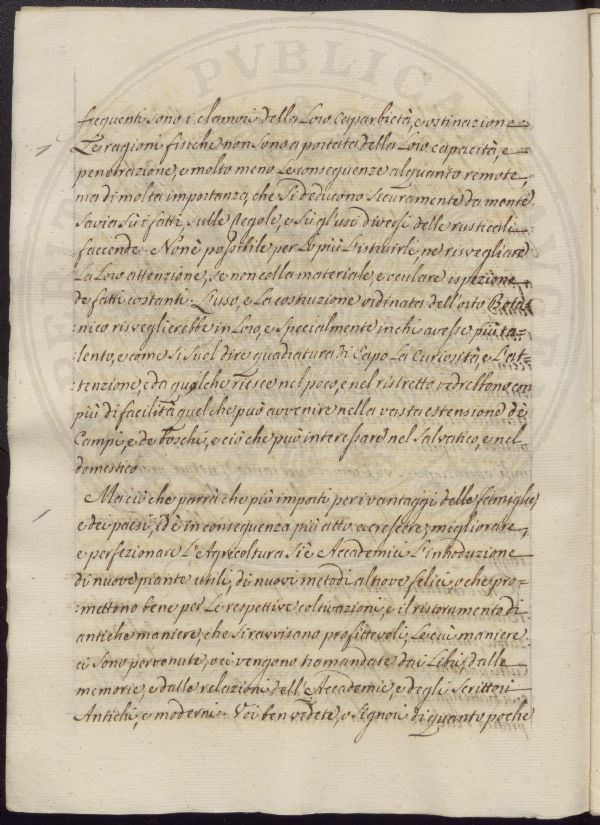 PVBLICA
frequenti sono i clamori della loro caparbietà, e ostinazione
Le ragioni fisiche non sono a portata della loro capacità, e
penetrazione, e molto meno le conseguenze alquanto remote,
ma di molta importanza, che si deducono sicuramente da mente
savia sù i fatti, sulle regole, e sù gl'usi diversi delle rusticali
faccende. Non è possibile per lo più l'istruirli, ne risvegliare
la loro attenzione, se non colla materiale, e oculare ispezione
de fatti costanti. L'uso, e la costruzione ordinata dell'orto Bota=
=nico risveglierebbe in loro, e specialmente in chi avesse più ta=
=lento, e come si suol dire quadratura di Capo la curiosità, e l'at=
=tenzione, e da quel che riesce nel poco, e nel ristretto vedrebbono con
più di facilità quel che può avvenire nella vasta estensione de
Campi, e de boschi, e ciò che può interessare nel salvatico, e nel
domestico
Ma ciò che parrà che più importi per i vantaggi delle famiglie,
e dei paesi, ed è in conseguenza più atto a crescere, migliorare,
e perfezionare l'Agricoltura si è Accademici l'introduzione
di nuove piante utili, di nuovi metodi altrove felici, o che pro=
=mettono bene per le respettive coltivazioni, e il ristoramento di
antiche maniere, che si ravvisano profittevoli, le cui maniere
ci sono pervenute, o ci vengono tramandate dai Libri, dalle
memorie, e dalle relazioni dell'Accademie, e degli Scrittori
Antichi, e moderni. Voi ben vedete, o Signori di quanto poche